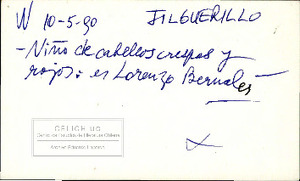 N 10-5-90 JILGUERILLO
- Niño de cabellos crespos y
rojos: es Lorenzo Bernales -
CELICH UC
Centro de Estudios de Literatura Chilena